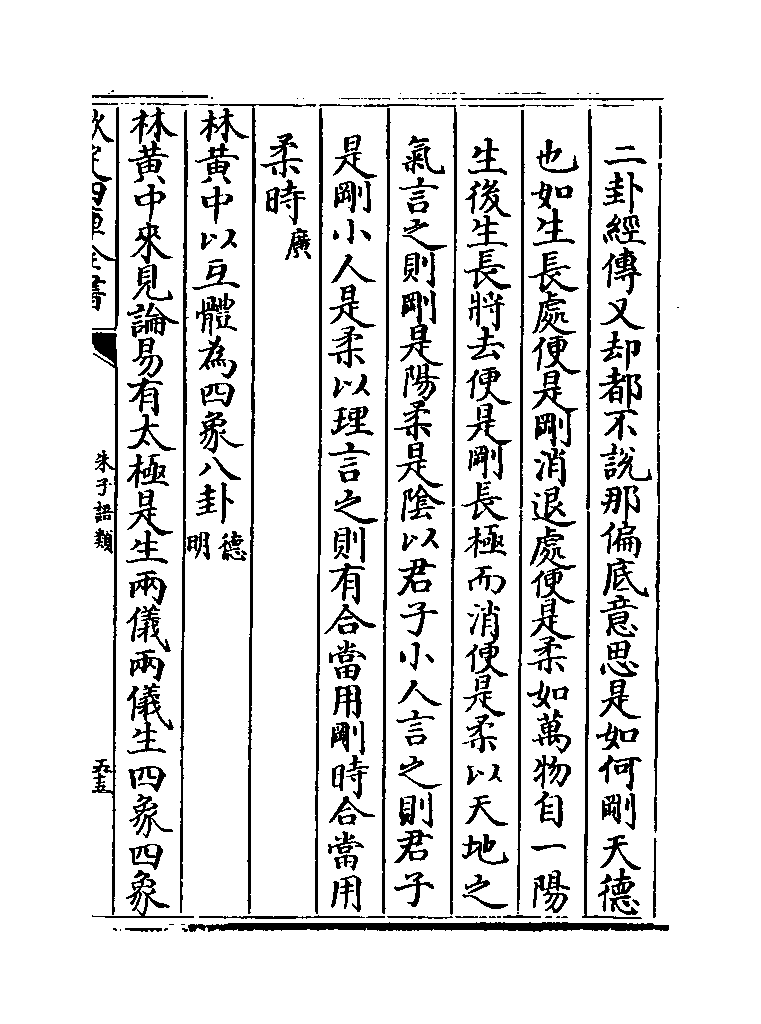 二卦經傳又却都不說那偏底意思是如何剛天德
也如生長處便是剛消退處便是柔如萬物自一陽
生後生長將去便是剛長極而消便是柔以天地之
氣言之則剛是陽柔是陰以君子小人言之則君子
是剛小人是柔以理言之則有合當用剛時合當用
柔時廣
林黄中以互體為四象八卦德明
林黄中來見論易有太極是生兩儀兩儀生四象四象
欽定四庫全書
朱子語類